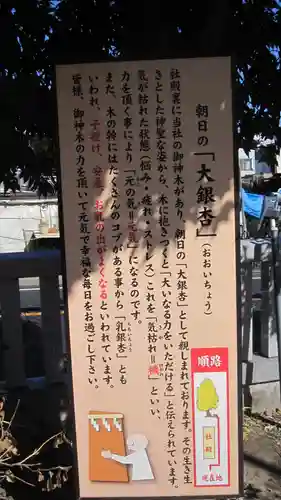 朝日の「大銀杏」(おおいちょう)
社殿裏に当社の御神木があり、朝日の「大銀杏」として親しまれております。その生き生
きとした神聖な姿から、木に抱きつくと「大いなる力をいただける」と伝えられています。
気が枯れた状態(悩み・疲れ・ストレス)これを「気枯れ＝穢」といい、
力を頂く事により「元の気＝元気」になるのです。
また、木の幹にはたくさんのコブがある事から「乳銀杏」とも
いわれ、子授け、安産、お乳の出がよくなるといわれています。
皆様、御神木の力を頂いて元気で幸福な毎日をお過ごし下さい。
順路
社殿
現在地